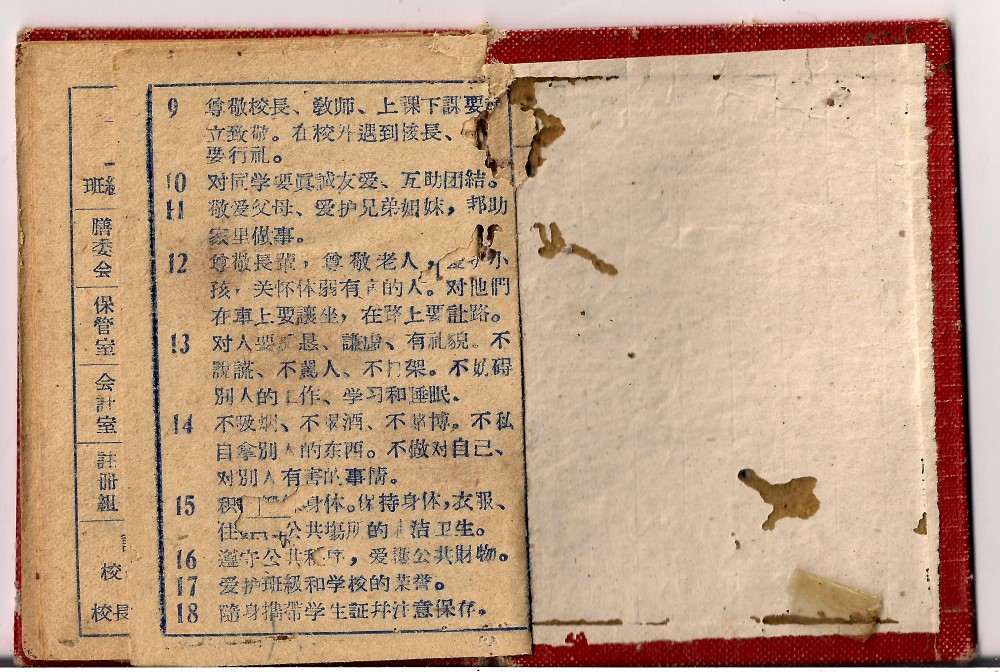 班級
膳委会
保管室
会計室
註册組
校
校長
9 尊敬校長、敎师、上課下課要
立致敬。在校外遇到校長、
要行礼。
10 对同学要眞誠友爱、互助团結。
11 敬爱父母、爱护兄弟姐妹，邦助
家里做事。
12 尊敬長輩，尊敬老人，爱护小
孩，关怀体弱有的人。对他們
在車上要讓坐，在路上要讓路。
13 对人要、謙虛、有礼貌。不
說謊、不駡人、不打架。不妨碍
別人的工作、学习和睡眠。
14 不吸烟、不喝酒、不賭博。不私
自拿別人的东西。不做对自己、
对別人有害的事情。
15 积身体。保持身体，衣服、
住公共場所的洁卫生。
16 遵守公共秩序，爱護公共財物。
17 爱护班級和学校的荣誉。
18 隨身攜帶学生証幷注意保存。